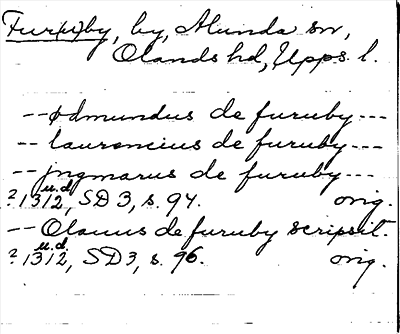 Fur(u)by, by, Alunda sn,
Olands hd, Upps. l.
-- ødmundus de furuby ---
-- laurencius de furuby ---
-- jngmarus de furuby ---
? 1312 u.d., SD 3, s. 94. orig.
-- Olauus de furuby scripsit.
? 1312 u.d., SD 3, s. 96. orig.